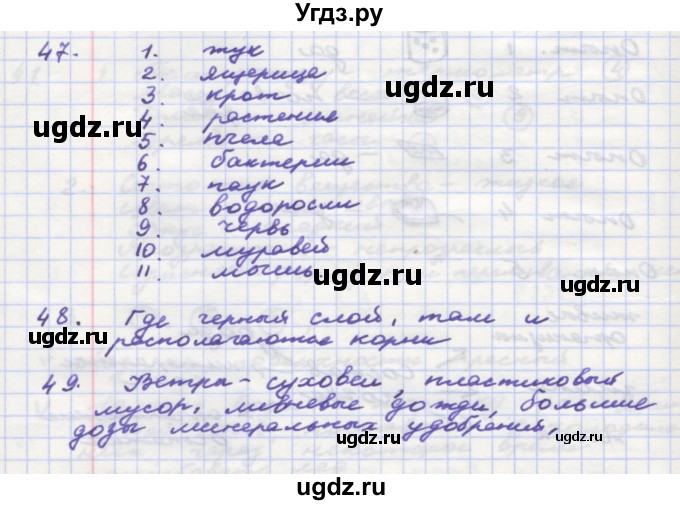 Угдз.ру
47. 1. жук
2. ящерица
3. крот
4. растения
5. пчела
6. бактерии
7. паук
8. водоросли
9. червь
10. муравей
11.
48. Где черный слой, там и
располагаются корни
49. Ветры-суховеи, пластиковый
мусор, ливневые дожди, большие
дозы минеральных удобрений,
ugdz.ru
ugdz.ru
ugdz.ru
ugdz.ru
ugdz.ru
ugdz.ru
ugdz.ru
ugdz.ru
ugdz.ru
ugdz.ru
ugdz.ru